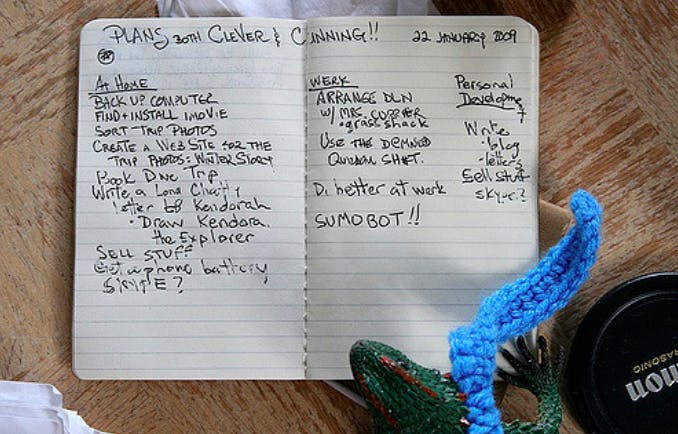 PLANS BOTH CLEVER & CUNNING!! 22 JANUARY 2009
AT HOME
BACK UP COMPUTER
FIND + INSTALL IMOVIE
SORT TRIP PHOTOS
CREATE A WEB SITE FOR THE
TRIP PHOTOS: WINTER STORY
Book Dive Trip
Write a Long Chatty
letter to Kendorah
• Draw Kendora
the Explorer
SELL STUFF
Get a phone battery
SIMPLE?
WERK
ARRANGE DLN
W/ MRS.
• grass shack
USE THE DEMNED
SHFT.
Do better at work
SUMOBOT!!
Personal
Developmet
Write
• blog
• letters
Sell stuff
SKYPE?
non
RASONIC